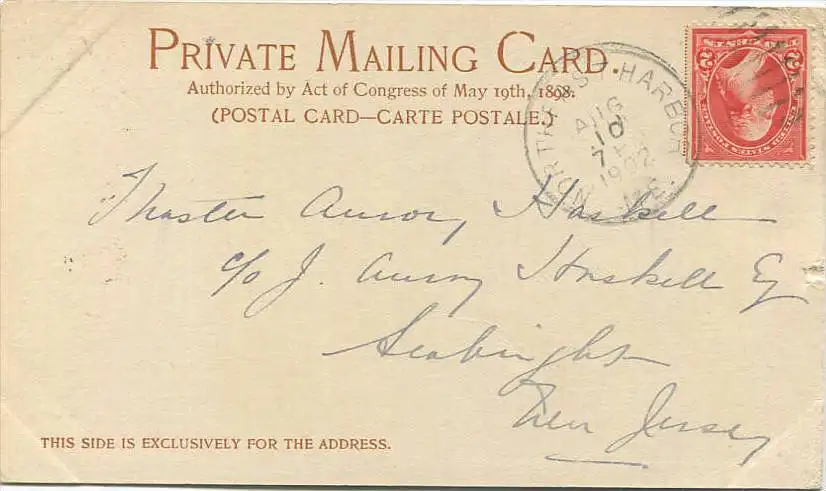 PRIVATE MAILING CARD.
Authorized by Act of Congress of May 19th, 1898.
(POSTAL CARD—CARTE POSTALE.)
NORTHEAST HARBOR ME.
AUG
10
7
1902
Master Amory Haskell
c/o J. Amory Haskell Esq
Seabright
New Jersey
THIS SIDE IS EXCLUSIVELY FOR THE ADDRESS.